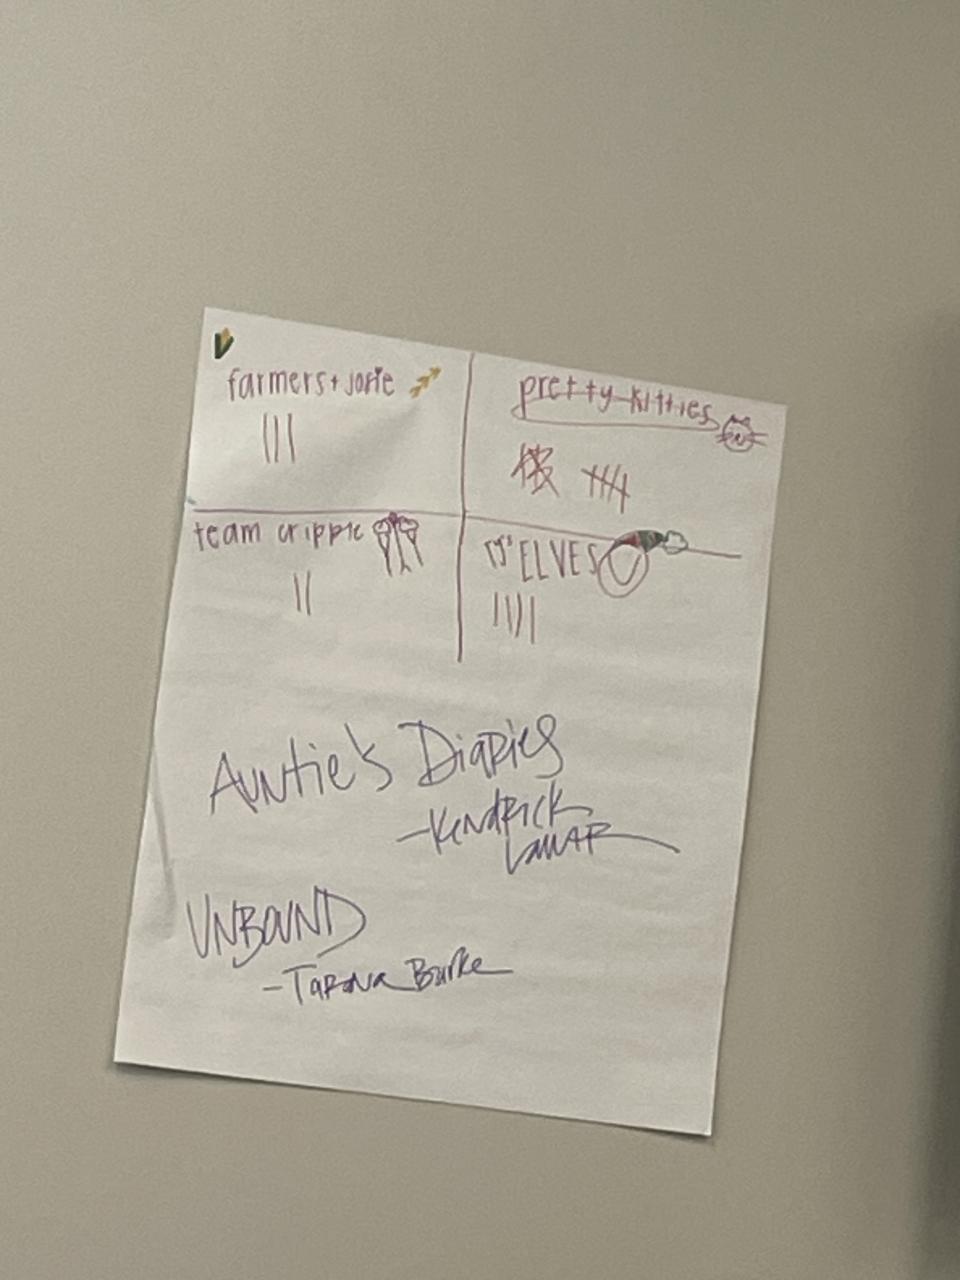 farmers + josie
pretty kitties
team cripple
ELVES
Auntie's Diaries
-Kendrick
Lamar
UNBOUND
-Tarana Burke